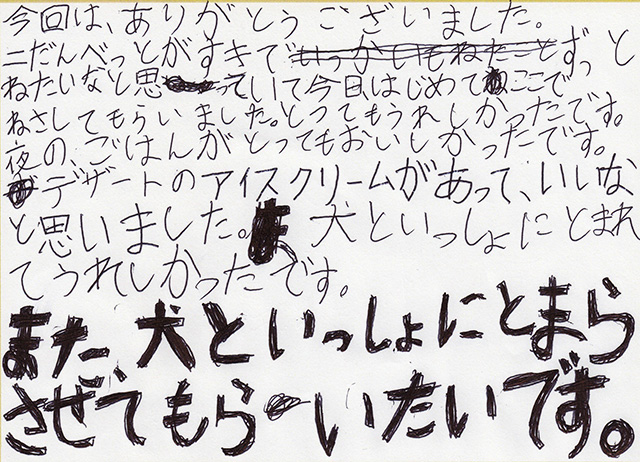 今回は、ありがとうございました。
二だんべっとがすきでずっと
ねたいなと思っていて今日はじめてここで
ねさしてもらいました。とってもうれしかったです。
夜の、ごはんがとってもおいしかったです。
デザートのアイスクリームがあって、いいな
と思いました。犬といっしょにとまれ
てうれしかったです。
また、犬といっしょにとまら
させてもらいたいです。